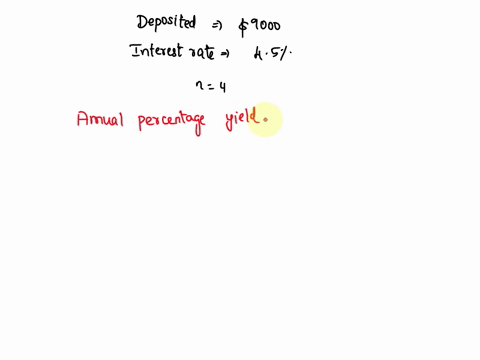 Deposited ⇒ $9000
Interest rate ⇒ 4.5%.
n=4
Annual percentage yield.